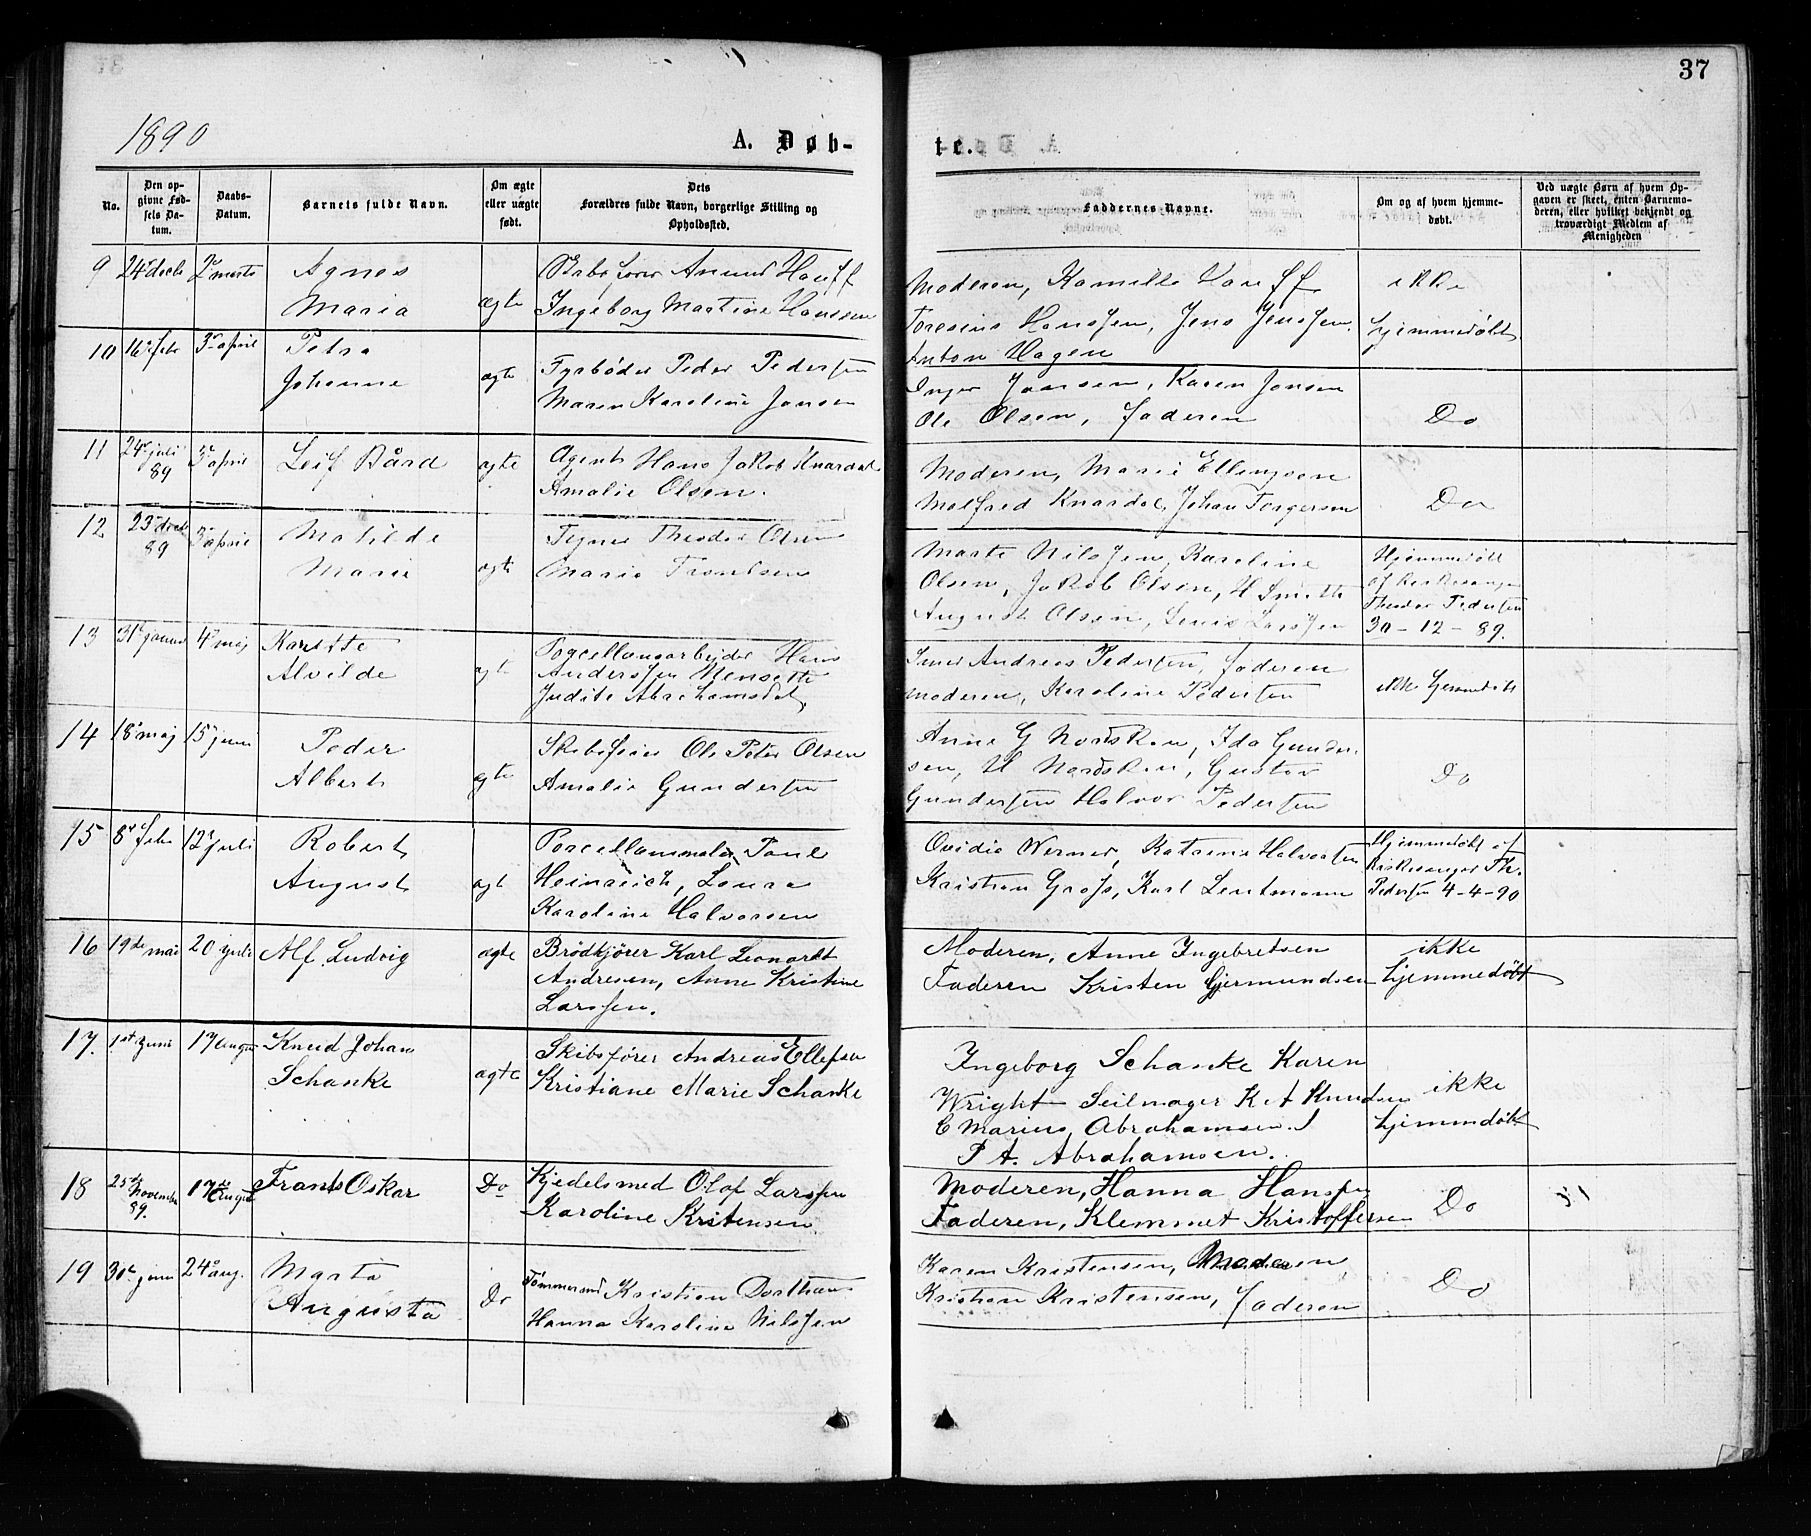 37
1890
A. Døb-
te.
No.
Den opgivne Fødsels Datum.
Daabs-Datum.
Barnets fulde Navn.
Om ægte eller uægte født.
Dets Forældres fulde Navn, borgerlige Stilling og Opholdssted.
Faddernes Navne.
Om og af hvem hjemmedøbt.
Ved uægte Børn af hvem Opgaven er skeet, enten Barnemoderen, eller hvilket bekjendt og troværdigt Medlem af Menigheden
9 24 decb 2 marts Agnes Maria ægte
Ingeborg Martine Hanssen
Moderen, Kamilla Hauff
Hanssen, Jens Jenssen,
Anton Hagen
ikke
hjemmedøbt
10 16 feb 3 april Petra Johanne ægte
Fyrbøder Peder Pedersen
Maren Karoline Jansen
Inger Jansen, Karen Jansen
Ole Olsen, faderen
Do
11 24 juli 89 3 april Leif Bård ægte
Agent Hans Jakob Knardal
Amalie Olsen.
Moderen, Marie Ellingsen
Malfred Knardal, Johan Torgersen
Do
12 23 decb 89 3 april Matilde Marie ægte
Theodor Olsen
Marie Trondsen
Marte Nilssen, Karoline
Olsen, Jakob Olsen, H Smith
August Olsen, Lewis Larssen
Hjemmedøbt
af Kirkesanger
Theodor Pedersen
30-12-89.
13 31 januar 4 maj Karlotte Alvilde ægte
Porcellansarbejder Hans
Anderssen
Judite Abrahamsdat
Andreas Pedersen, faderen
moderen, Karoline Pedersen
ikke hjemmedøbt
14 18 maj 15 juni Peder Albert ægte
Skibsfører Ole Peter Olsen
Amalie Gundersen
Anne G Nordskou, Ida Gunder-
sen, H Nordskou, Gustav
Gundersen Halvor Pedersen
Do
15 8 feb 12 juli Robert August ægte
Porcellansmaler Paul
Heinreich, Laura
Karoline Halvorsen
Ovidie Werner, Katrine Halvorsen
Kristian Gross, Karl Lentmann
Hjemmedøbt af
Kirkesanger Th.
Pedersen 4-4-90
16 19de mai 20 juli Alf Ludvig ægte
Brødkjører Karl Leonardt
Andresen, Anne Kristine
Larssen.
Moderen, Anne Ingebretsen
Faderen Kristen Gjermundsen
ikke
hjemmedøbt
17. 1st juni 17 august Knud Johan Schanke ægte
Skibsfører Andreas Ellefsen
Kristiane Marie Schanke
Ingeborg Schanke Karen
Wright Seilmager K A Knudsen
C Marius Abrahamsen.
P A. Abrahamsen.
ikke
hjemmedøbt
18 25de November 89. 17de August Frants Oskar Do
Kjedelsmed Olaf Larssen
Karoline Kristensen
Moderen, Hanna Hanssen
Faderen, Klemmet Kristoffersen
Do
19 30 juni 24 aug. Marta Augusta Do
Tømmermd Kristian Dorthan
Hanna Karoline Nilssen
Karen Kristensen, Moderen,
Kristian Kristensen, faderen
Do